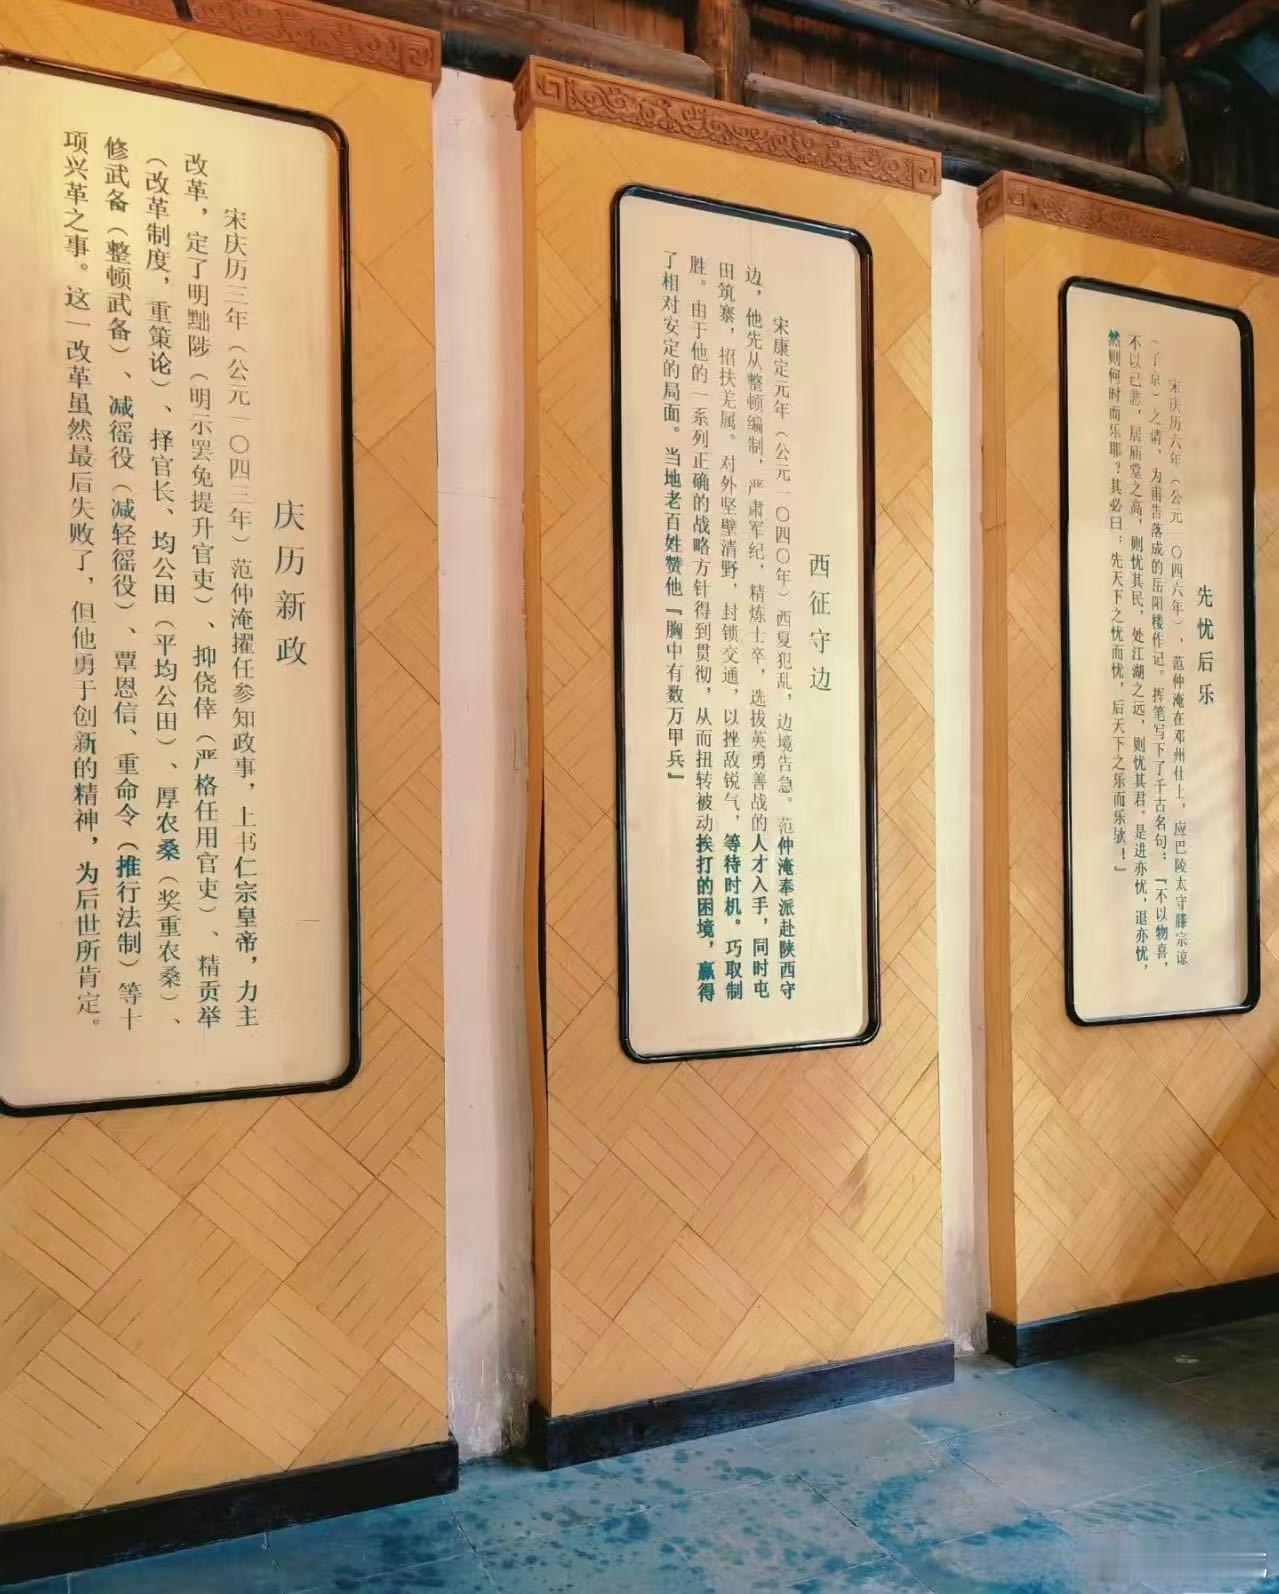 先忧后乐
宋庆历六年（公元一〇四六年），范仲淹在邓州仕上，应巴陵太守滕宗谅
（子京）之请，为甫告落成的岳阳楼作记。挥笔写下了千古名句：『不以物喜，
不以己悲，居庙堂之高，则忧其民，处江湖之远，则忧其君。是进亦忧，退亦忧，
然则何时而乐耶？其必曰：先天下之忧而忧，后天下之乐而乐欤！』
西征守边
宋康定元年（公元一〇四〇年）西夏犯乱，边境告急。范仲淹奉派赴陕西守
边，他先从整顿编制，严肃军纪，精炼士卒，选拔英勇善战的人才入手，同时屯
田筑寨，招扶羌属。对外坚壁清野，封锁交通，以挫敌锐气，等待时机。巧取制
胜。由于他的一系列正确的战略方针得到贯彻，从而扭转被动挨打的困境，赢得
了相对安定的局面。当地老百姓赞他『胸中有数万甲兵』
庆历新政
宋庆历三年（公元一〇四三年）范仲淹擢任参知政事，上书仁宗皇帝，力主
改革，定了明黜陟（明示罢免提升官吏）、抑侥倖（严格任用官吏）、精贡举
（改革制度，重策论）、择官长、均公田（平均公田）、厚农桑（奖重农桑）、
修武备（整顿武备）、减徭役（减轻徭役）、覃恩信、重命令（推行法制）等十
项兴革之事。这一改革虽然最后失败了，但他勇于创新的精神，为后世所肯定。